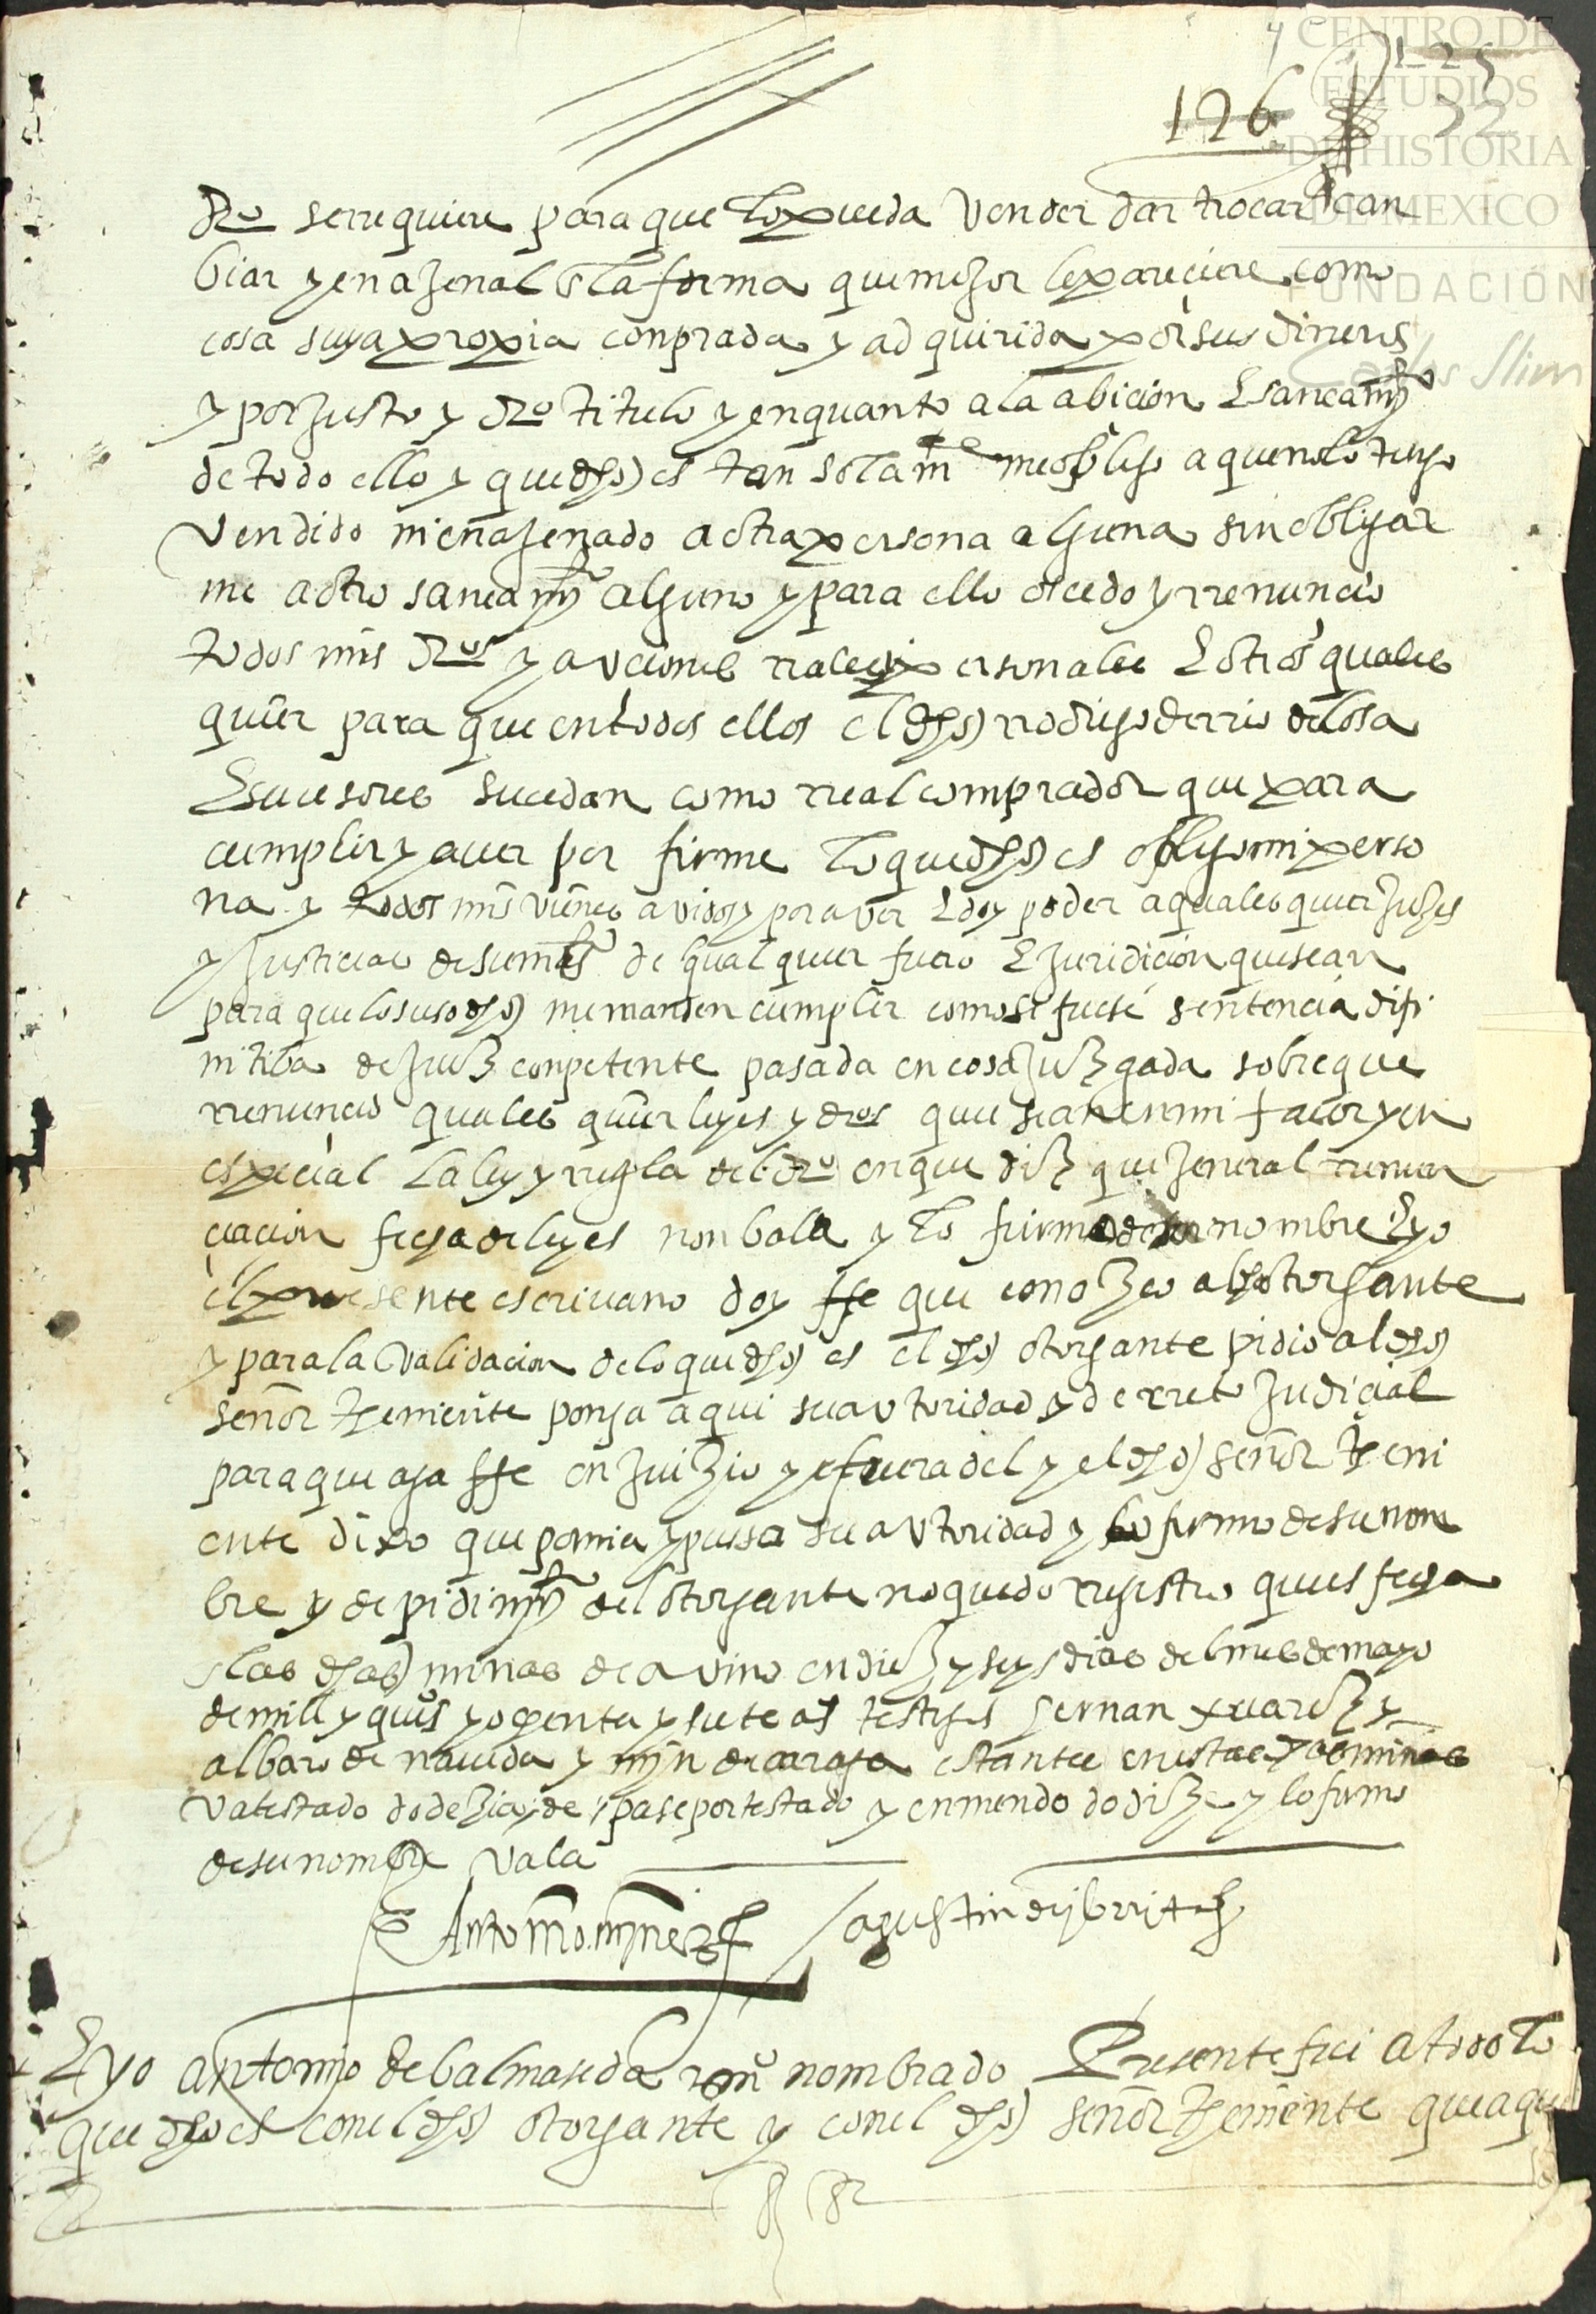 CENTRO DE
ESTUDIOS
DE HISTORIA
DE MEXICO
FUNDACIÓN
Carlos Slim
125
126 32
dro serrequiere para que lo pueda vender dar trocar can
biar y enajenal la forma que mejor le pareçiere como
cosa suya propia conprada y adquirida por sus dineros
y por justo y dro titulo y en quanto a la abicion E saneamyto
de todo ello y que dho es tan solamte me obligo a que no lo tengo
vendido ni enajenado a otra persona alguna sin obligar
me a otro saneamyto alguno y para ello cedo y rrenuncio
todos mis dros y auciones rales y personales E otros quales
quier para que en todos ellos el dho rrodrigo de rrio de losa
E sucesores sucedan como rreal comprador que para
cumplir y aver por firme lo que dho es obligo mi perso
na y todos mis vienes avidos y por aver E doy poder a qualesquier juezes
y justicias de su mags de qual quier fuero E juridicion que sean
para que lo suso dho me manden cumplir como si fuese sentencia difi
nitiba de juez conpetente pasada en cosa juzgada sobre que
rrenuncio quales quier leyes y dros que sean en mi favor y en
espeçial la ley y rregla del dro en que diz que jeneral rrenun
çiaçion fecha de leyes non bala y lo firmo nombre E yo
el presente escrivano doy ffe que conozco al dho otorgante
y para la validacion de lo que dho es el dho otorgante pidio al dho
señor theniente ponga aqui su avtoridad y decreto judiçial
para que aga ffe en juizio y fuera del y el dho señor theni
ente dixo que ponia y pusso su avtoridad y lo firmo de su nom
bre y de pidimyto del otorgante no quedo rregistro ques fecha
las dhas minas de avino en diez y seys dias del mes de mayo
de mill y quis y ochenta y siete as testigos hernan xuarez y
albaro de y myn de estantes en estas dhas minas
va testado do dezia de pase por testado y enmendo do dize y lo firmo
de su nombre vala
Antonio agustin
E yo antonio de balmaseda nombrado Presente fui a todo lo
que dho es con el dho otorgante y con el dho señor theniente que aqui